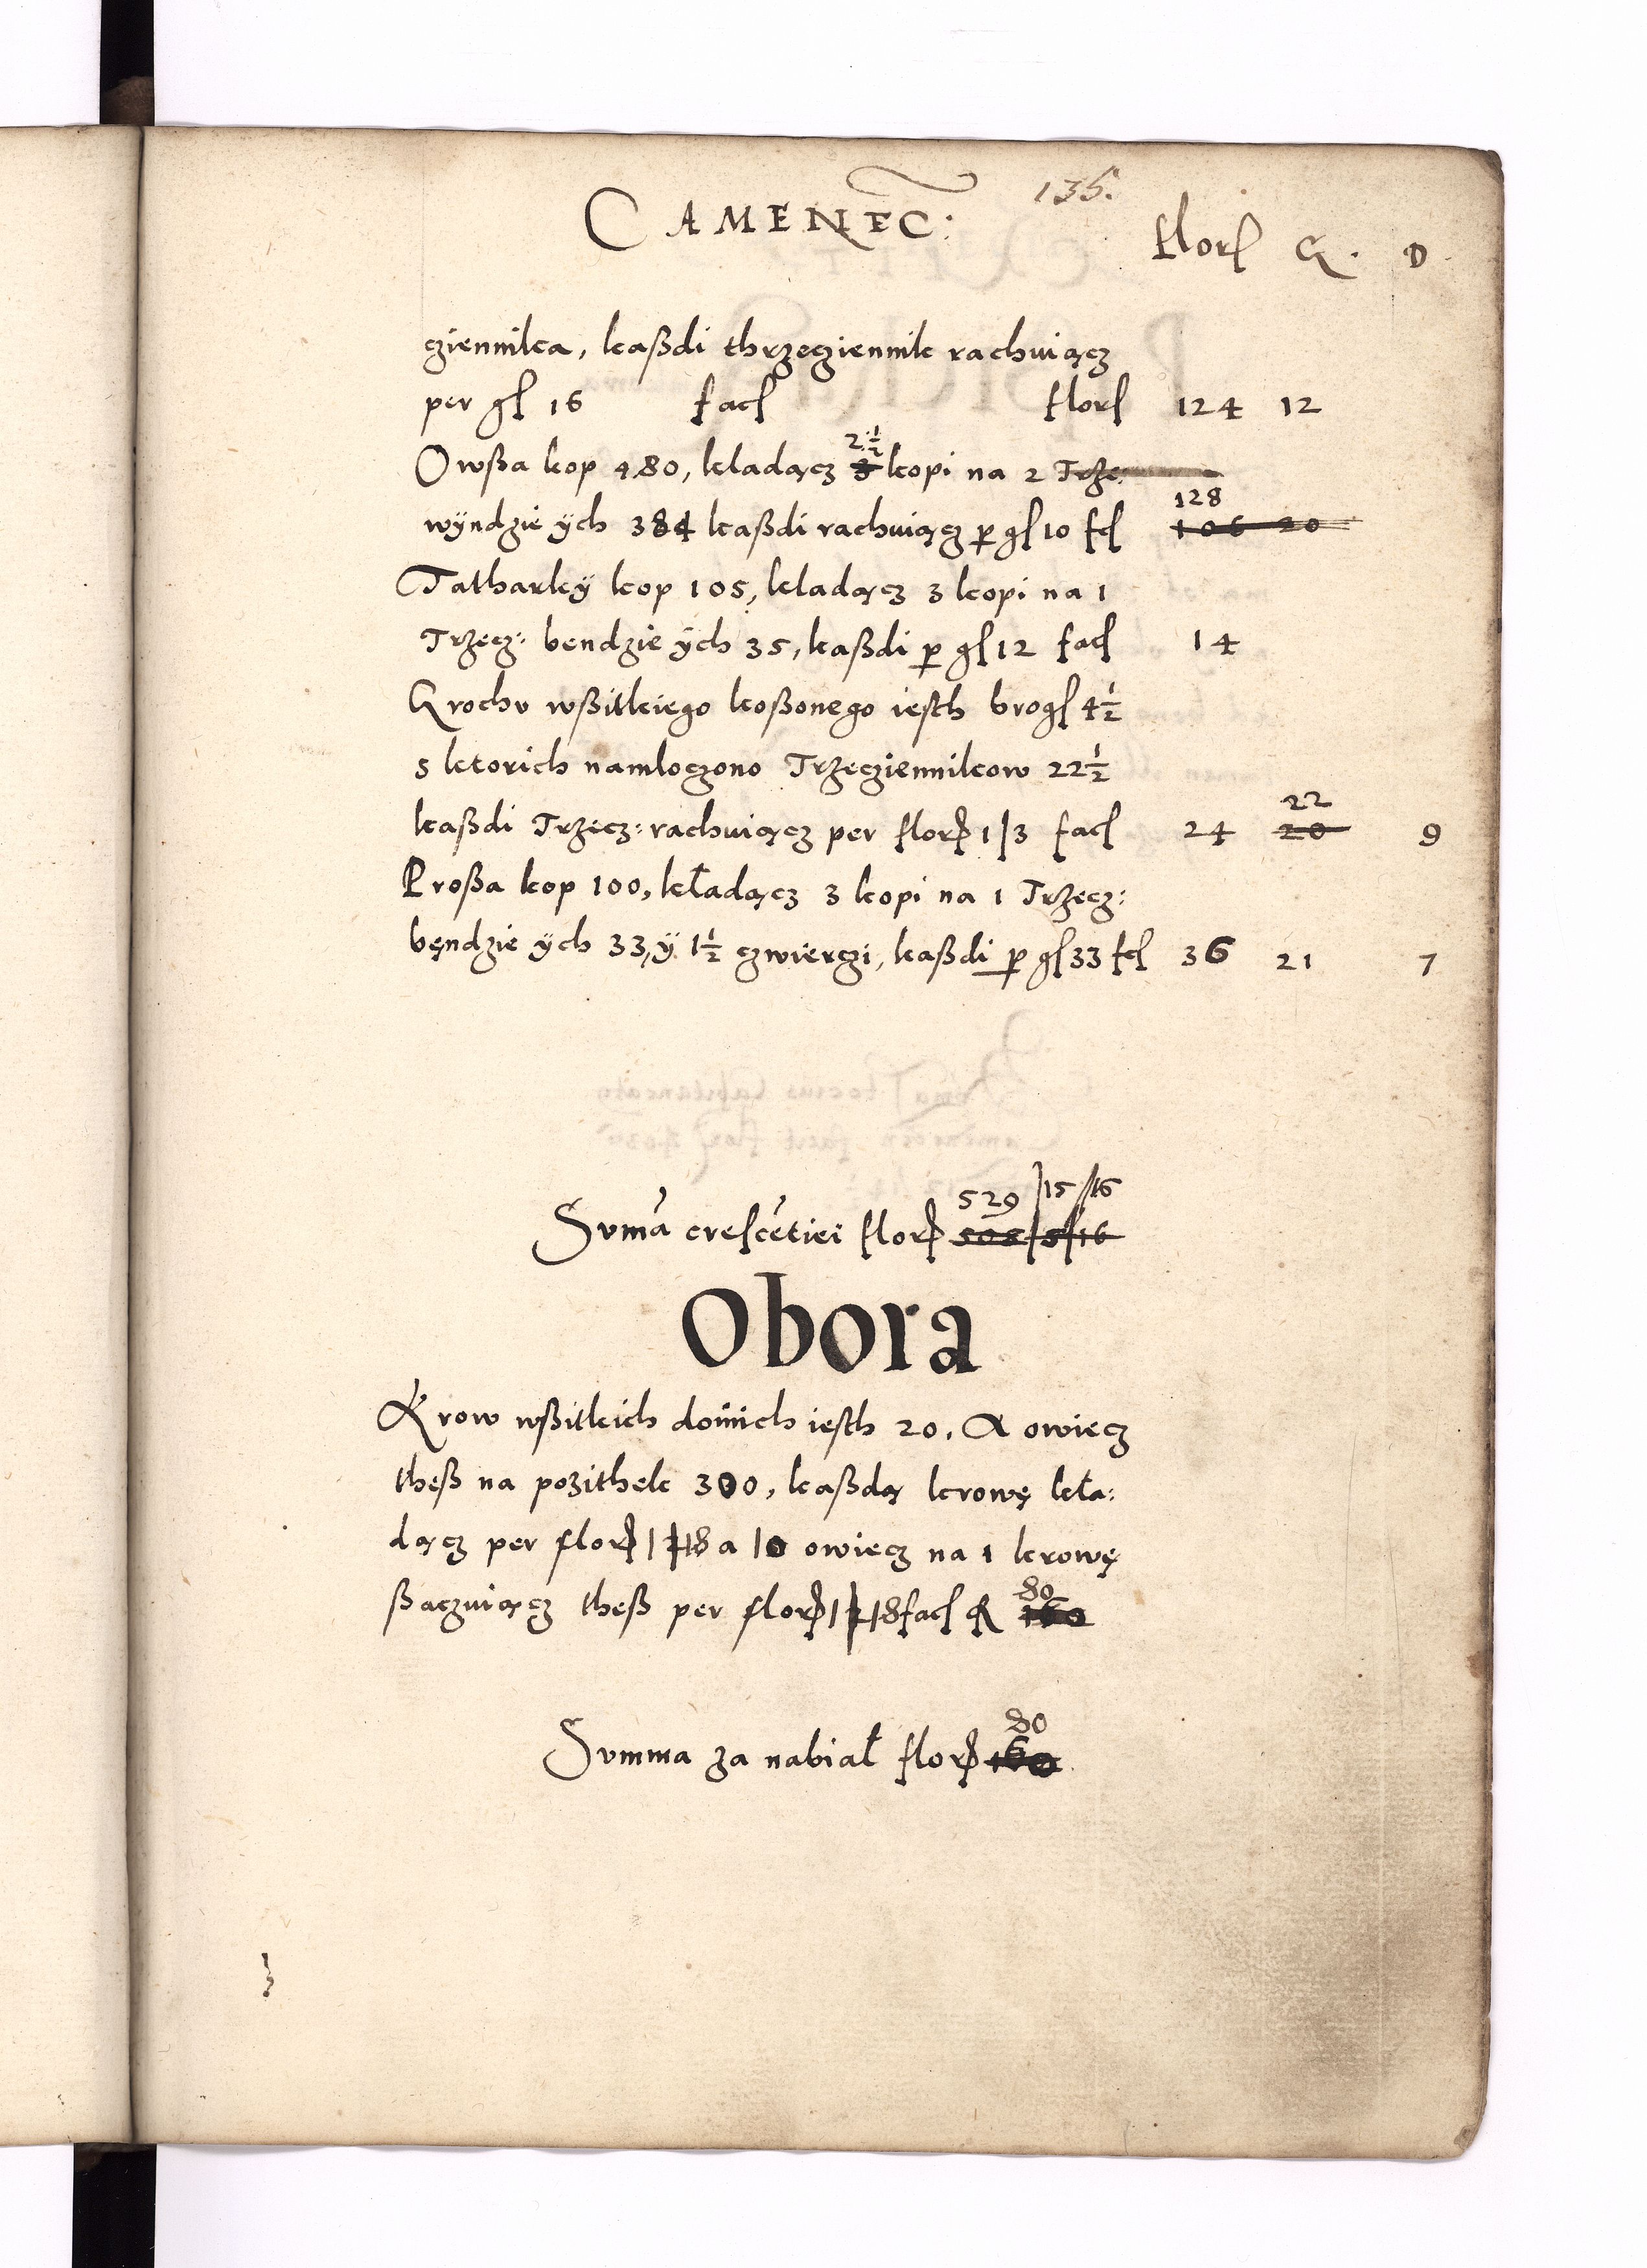 CAMENEC: 135.
florſ G. D.
cziennika, kaßdi thrzecziennik rachuiącz
per gſ 16 facſ florſ 124 12
Owßa kop 480, kladącz 2½ 3 kopi na 2 Trze:
128
wÿndzie ÿch 384 kaßdi rachuiącz p gſ 10 fcſ 106 20
Tatharkÿ kop 105, kladącz 3 kopi na 1
Trzecz: bendzie ÿch 35, kaßdi p gſ 12 facſ 14
Grochu wßitkiego koßonego iesth brogſ 4½
s ktorich namloczono Trzecziennikow 22½
22
kaßdi Trzecz: rachuiącz per florſ 1/3 facſ 24 20 9
Proßa kop 100, kładącz 3 kopi na 1 Trzecz:
bęndzie ÿch 33, ÿ 1½ czwierczi, kaßdi p gſ 33 fcſ 36 21 7
529/15/16
Suma crescetiei florſ 508/5/16
Obora
Krow wßitkich doinich iesth 20, A owiecz
theß na pozithek 300, kaßdą krowę kła:
dącz per florſ 1/18 a 10 owiecz na 1 krowę
80
ßaczuiącz theß per florſ 1/18 facſ 160
80
Summa za nabiał florſ 160